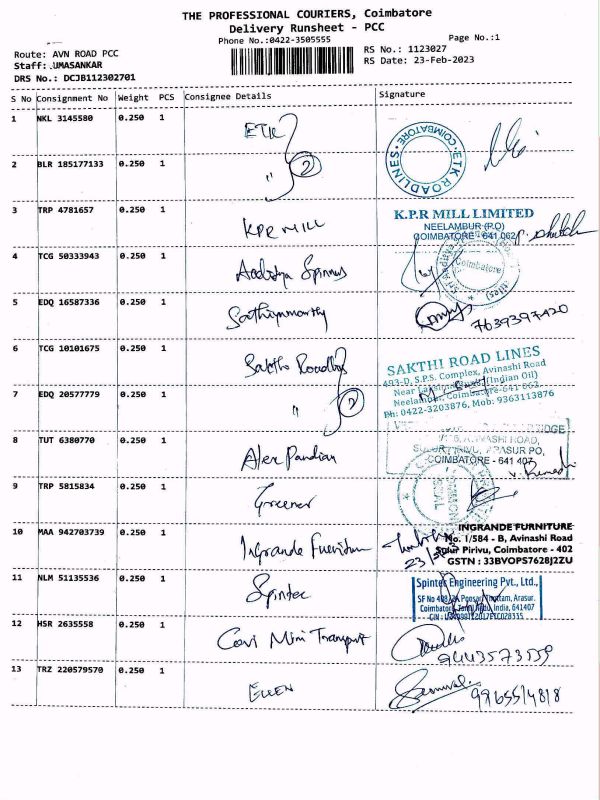 THE PROFESSIONAL COURIERS, Coimbatore
Delivery Runsheet - PCC
Phone No.:0422-3505555
Page No.:1
Route: AVN ROAD PCC
RS No.: 1123027
Staff: UMASANKAR
RS Date: 23-Feb-2023
DRS No.: DCJB112302701
S No Consignment No Weight PCS Consignee Details Signature
1 NKL 3145580 0.250 1 ETK
COIMBATORE ETK ROADLINES
2 BLR 185177133 0.250 1 " 2
3 TRP 4781657 0.250 1 KPR MILL
K.P.R MILL LIMITED
NEELAMBUR (P.O)
COIMBATORE - 641 062
4 TCG 50333943 0.250 1 Aaditya Spinners
Coimbatore
5 EDQ 16587336 0.250 1 Sathiyamoorthy
7639397420
6 TCG 10101675 0.250 1 Sakthi Roadlines
SAKTHI ROAD LINES
493-D, S.P.S. Complex, Avinashi Road
(Indian Oil)
Neelambur, Coimbatore-641 062
Ph: 0422-3203876, Mob: 9363113876
7 EDQ 20577779 0.250 1 " 2
8 TUT 6380770 0.250 1 Alex Pandian
AVINASHI ROAD,
ARASUR PO,
COIMBATORE - 641 407
9 TRP 5815834 0.250 1 Greener
10 MAA 942703739 0.250 1 Ingrande Furniture
INGRANDE FURNITURE
No. 1/584 - B, Avinashi Road
Sulur Pirivu, Coimbatore - 402
GSTN : 33BVOPS7628J2ZU
11 NLM 51135536 0.250 1 Spintec
Spintec Engineering Pvt., Ltd.,
Thottam, Arasur.
Coimbatore, Tamil Nadu, India, 641407
12 HSR 2635558 0.250 1 Covi Mini Transport
9443573559
13 TRZ 220579570 0.250 1 ELLEN
9965514818